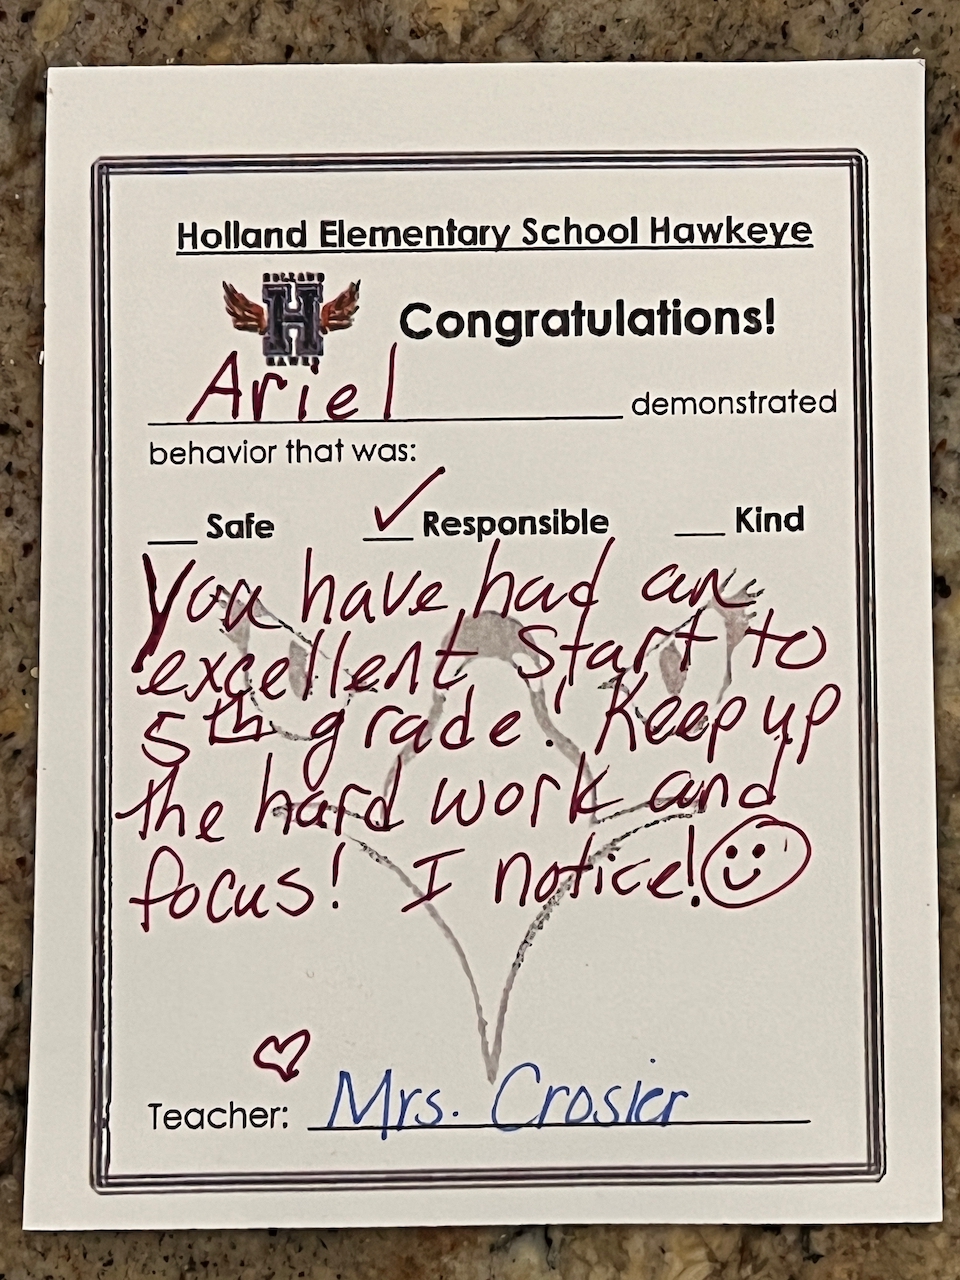 Holland Elementary School Hawkeye
HOLLAND
H
HAWKS
Congratulations!
Ariel demonstrated
behavior that was:
__ Safe ✓ Responsible __ Kind
You have had an
excellent start to
5th grade! Keep up
the hard work and
focus! I notice! ☺
♡
Teacher: Mrs. Crosier